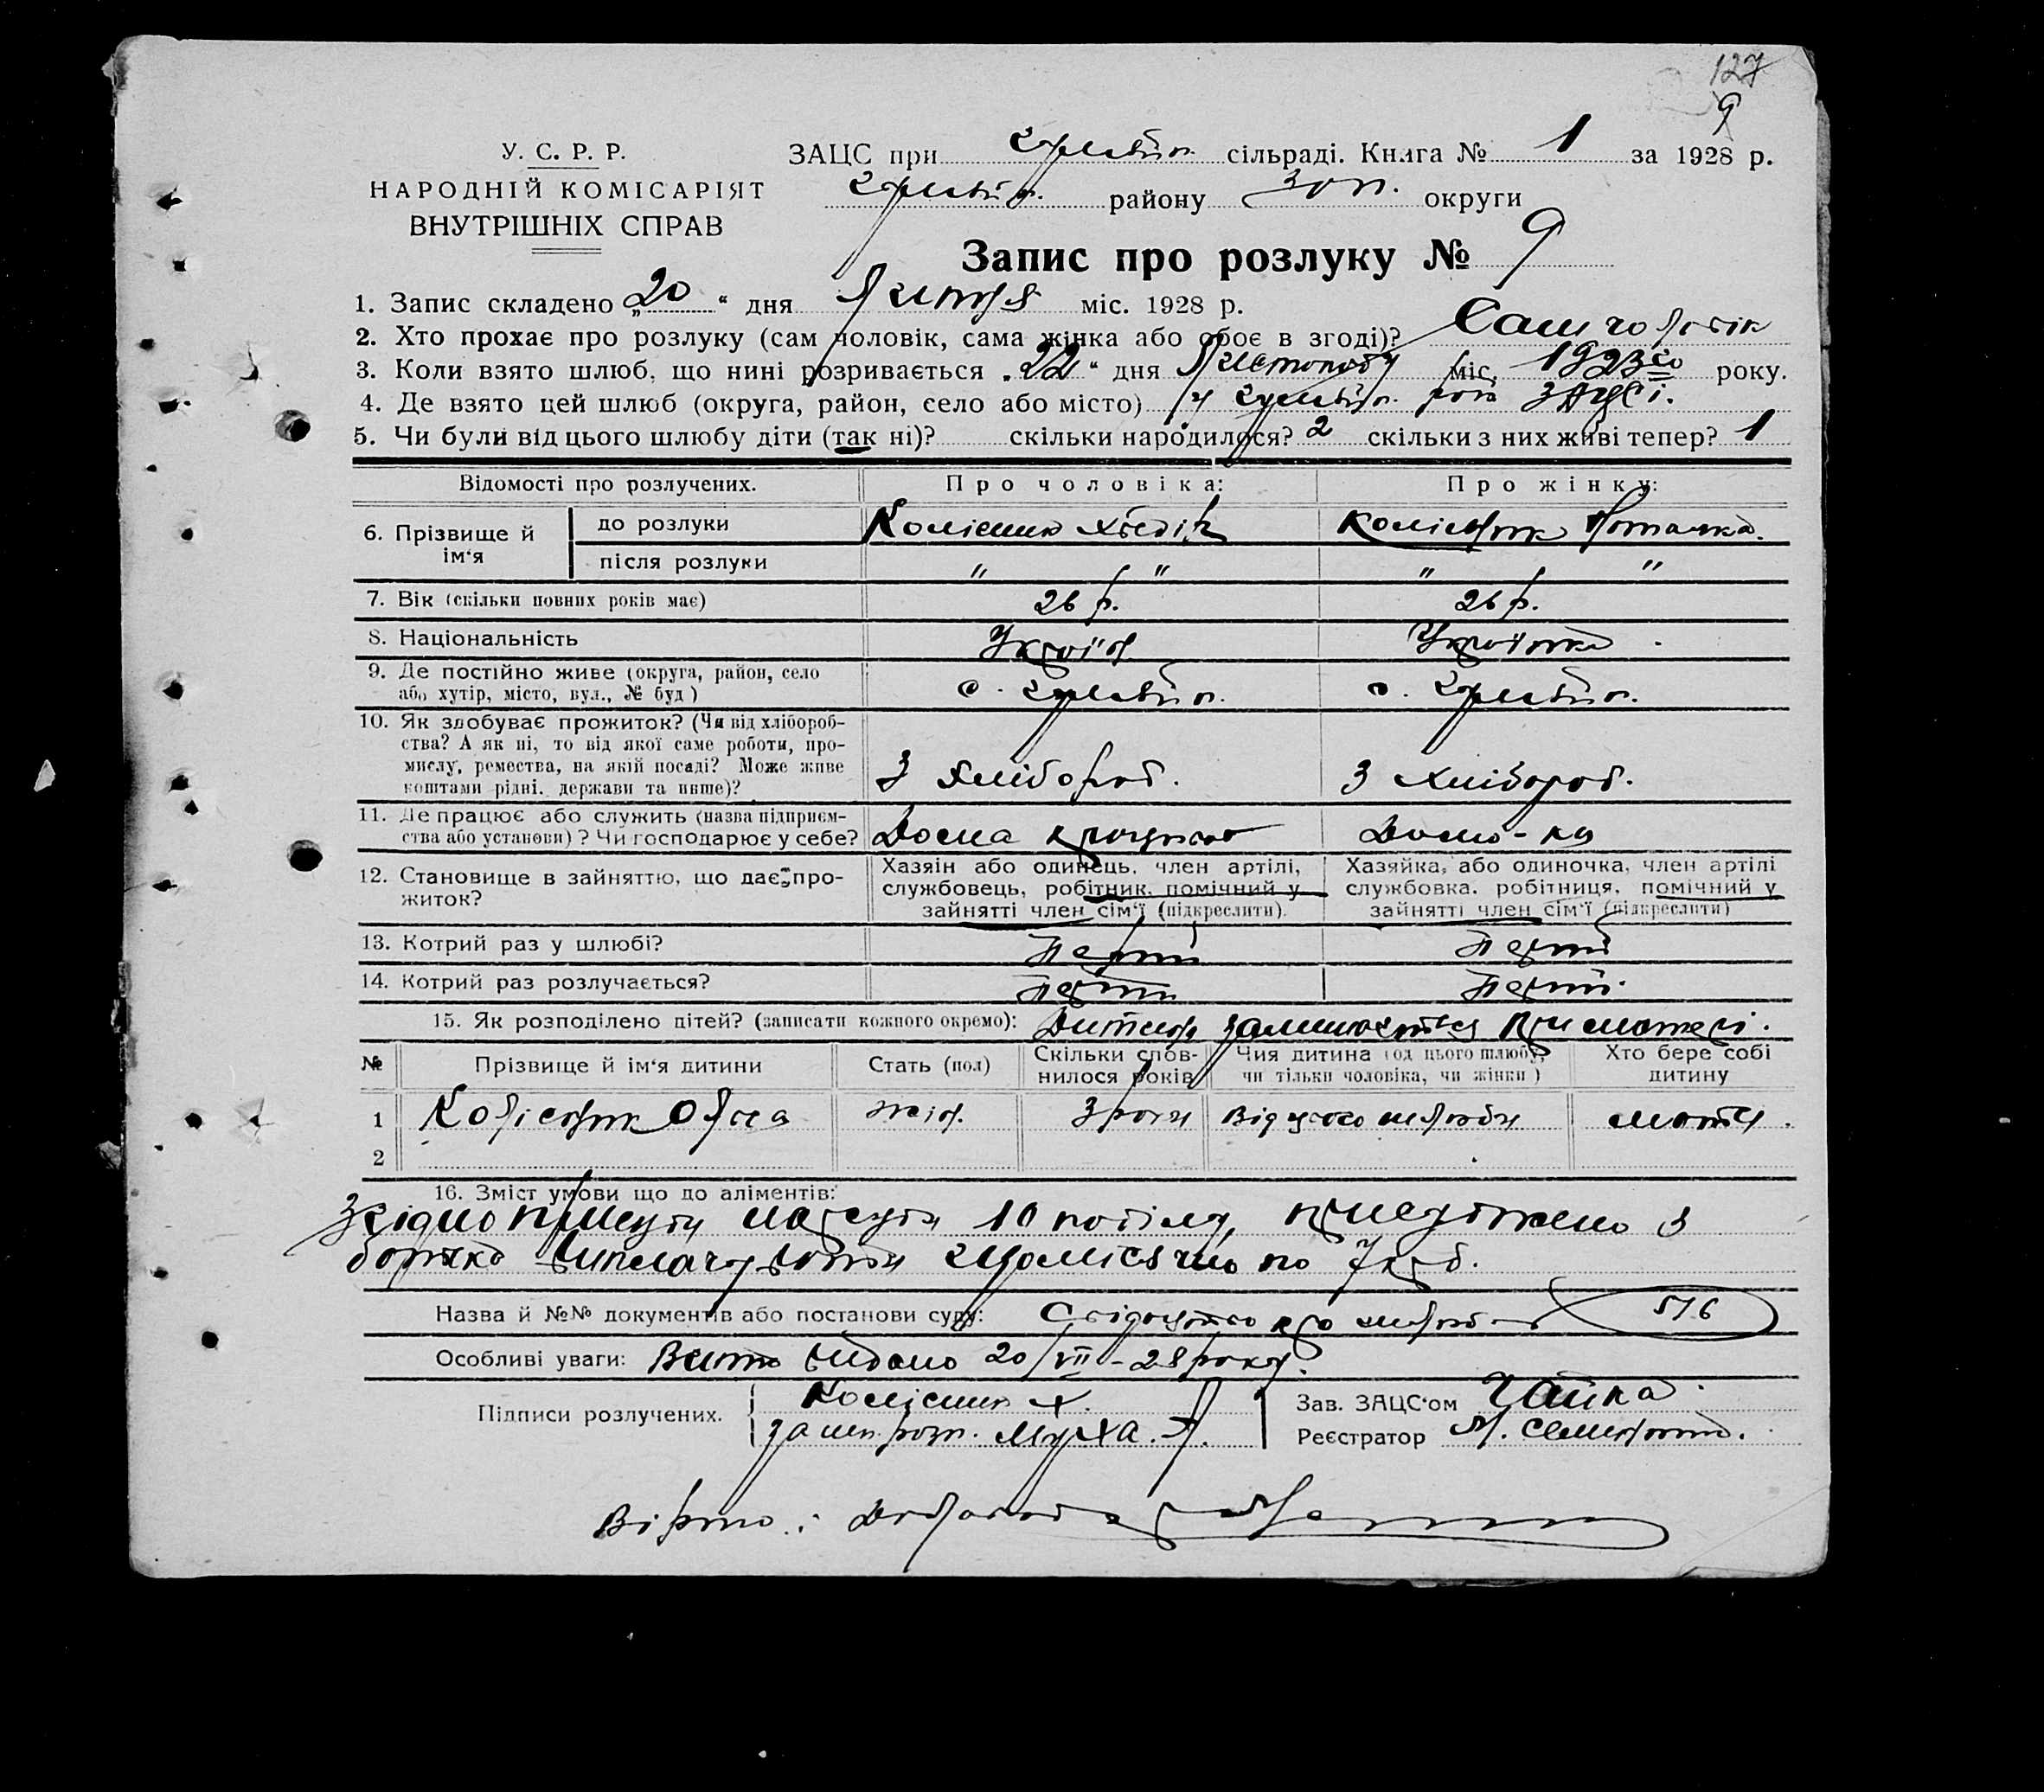 127
9
У. С. Р. Р.
НАРОДНІЙ КОМІСАРІЯТ
ВНУТРІШНІХ СПРАВ
ЗАЦС при сільраді. Книга № 1 за 1928 р.
району Зап. округи
Запис про розлуку № 9
1. Запис складено „20“ дня Липня міс. 1928 р.
2. Хто прохає про розлуку (сам чоловік, сама жінка або обоє в згоді)? Сам чоловік
3. Коли взято шлюб, що нині розривається „22“ дня Листопаду міс. 1923го року.
4. Де взято цей шлюб (округа, район, село або місто) У ЗАЦСі.
5. Чи були від цього шлюбу діти (так ні)? скільки народилося? 2 скільки з них живі тепер? 1
Відомості про розлучених. Про чоловіка: Про жінку:
6. Прізвище й ім‘я до розлуки Колісник Колісник
після розлуки " " " "
7. Вік (скільки повних років має) 26 р. 26 р.
8. Національність Україн Українка
9. Де постійно живе (округа, район, село або хутір, місто, вул., № буд) с. с.
10. Як здобуває прожиток? (Чи від хлібороб-
ства? А як ні, то від якої саме роботи, про-
мислу, ремества, на якій посаді? Може живе
коштами рідні, держави та инше)? З хлібороб. З хлібороб.
11. Де працює або служить (назва підприєм-
ства або установи)? Чи господарює у себе? Дома працює Домо-ка
12. Становище в зайняттю, що дає про-
житок?
Хазяін або одинець, член артілі,
службовець, робітник, помічний у
зайнятті член сім‘ї (підкреслити).
Хазяйка, або одиночка, член артілі
службовка, робітниця, помічний у
зайнятті член сім‘ї (підкреслити)
13. Котрий раз у шлюбі? Перший Перший
14. Котрий раз розлучається? Перший Перший
15. Як розподілено дітей? (записати кожного окремо): Дитина залишається при матері.
№ Прізвище й ім‘я дитини Стать (пол) Скільки спов-
нилося років Чия дитина (од цього шлюбу,
чи тільки чоловіка, чи жінки) Хто бере собі
дитину
1 Колісник Ольга жін. 3 роки Від цього шлюбу мати.
2
16. Зміст умови що до аліментів:
Згідно присуду нарсуду 10 присуджено з
батька виплачувати щомісячно по 7 крб.
Назва й №№ документів або постанови суду: Свідоцтво про шлюб 516
Особливі уваги: видано 20/VII-28 року.
Підписи розлучених. Колісник Х.
за неп. розп. Муха. А.
Зав. ЗАЦС‘ом Чайка
Реєстратор
Вірно: